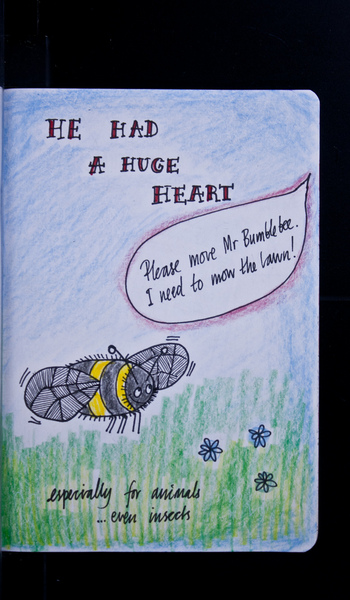 HE HAD
A HUGE
HEART
Please move Mr Bumblebee.
I need to mow the lawn!
especially for animals
...even insects